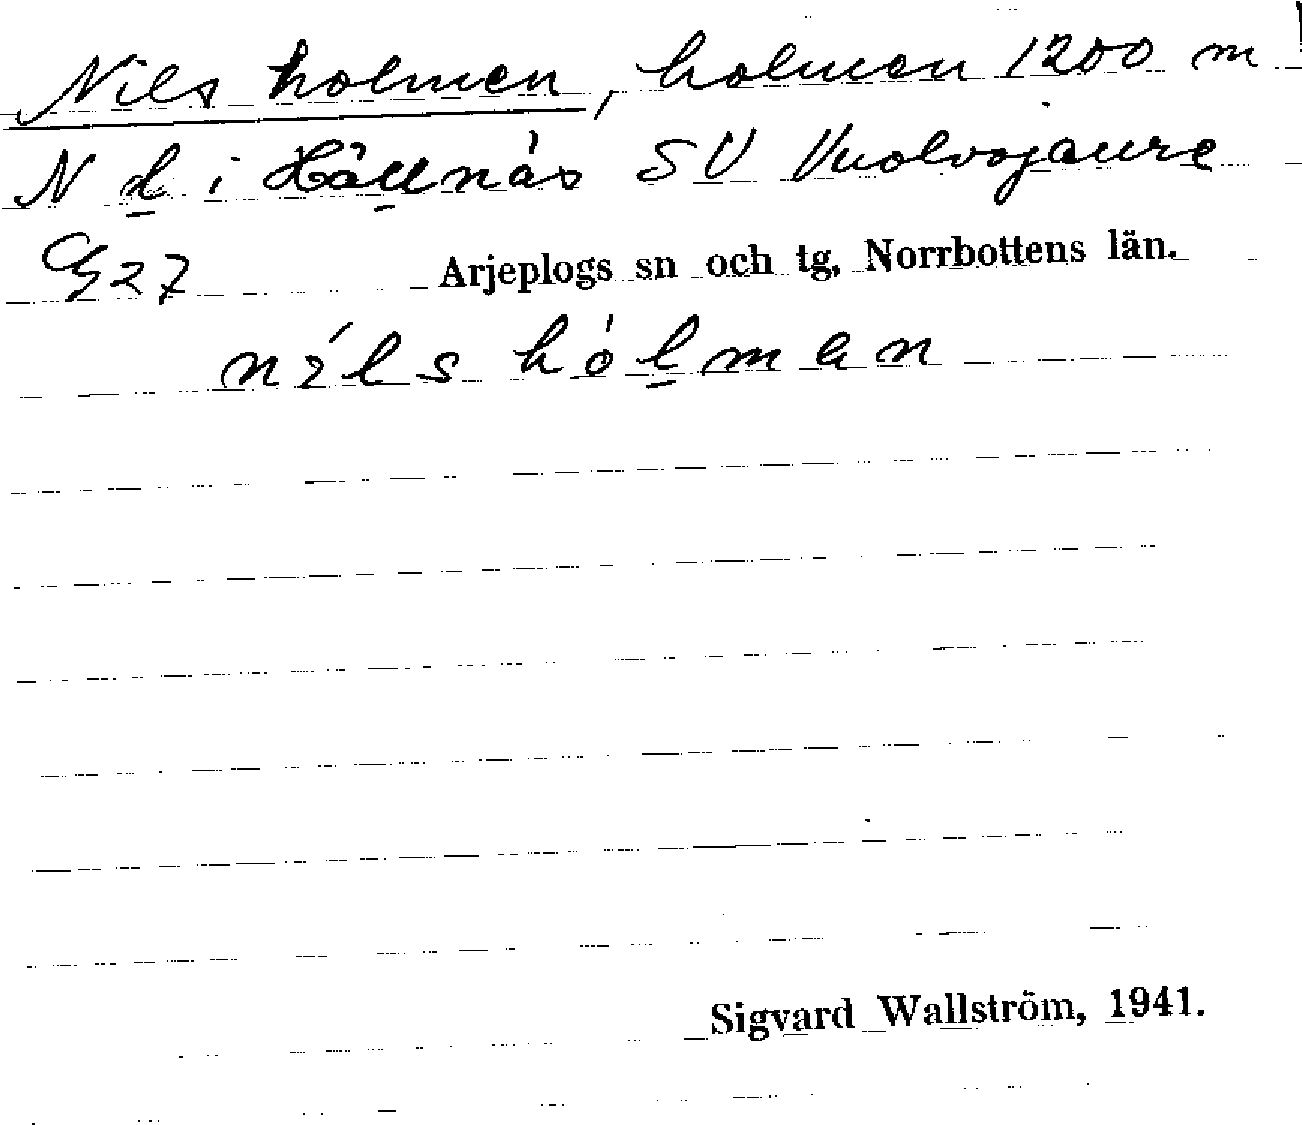 Nilsholmen, holmen 1200 m
N d i Hällnäs SV Vuolvojaure
G27 Arjeplogs sn och tg, Norrbottens län.
níls hólman
Sigvard Wallström, 1941.